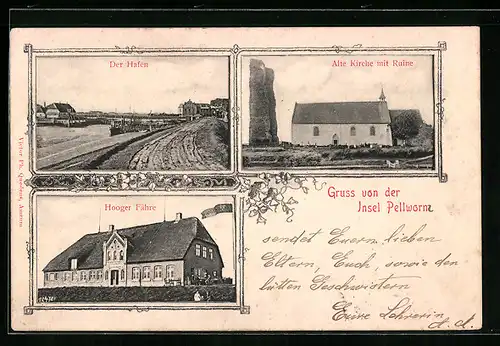 Der Hafen
Alte Kirche mit Ruine
Hooger Fähre
Gruss von der
Insel Pellworm
sendet Euern lieben
Eltern, Euch, sowie den
Geschwistern
Eure Lehrerin
d. d.